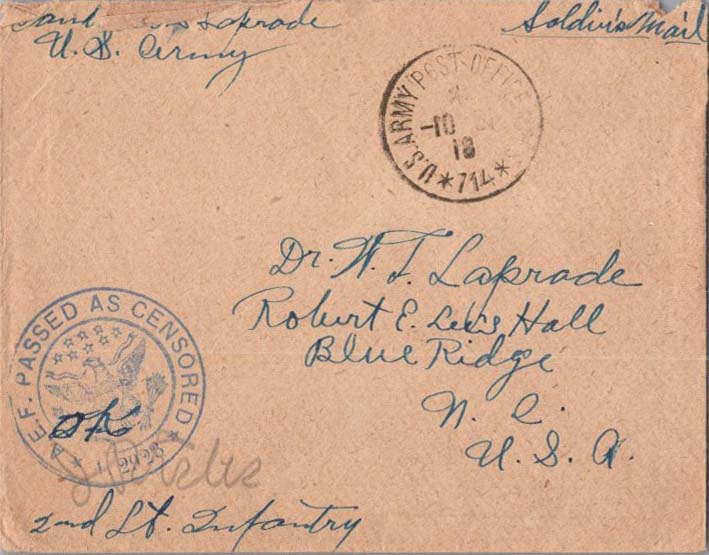 Laprade
U.S. Army
Soldier's Mail
U.S. ARMY POST OFFICE
-10
18
*714*
Dr. W. T. Laprade
Robert E. Lee's Hall
Blue Ridge
N. C.
U. S. A.
A.E.F. PASSED AS CENSORED
OK
2nd Lt. Infantry